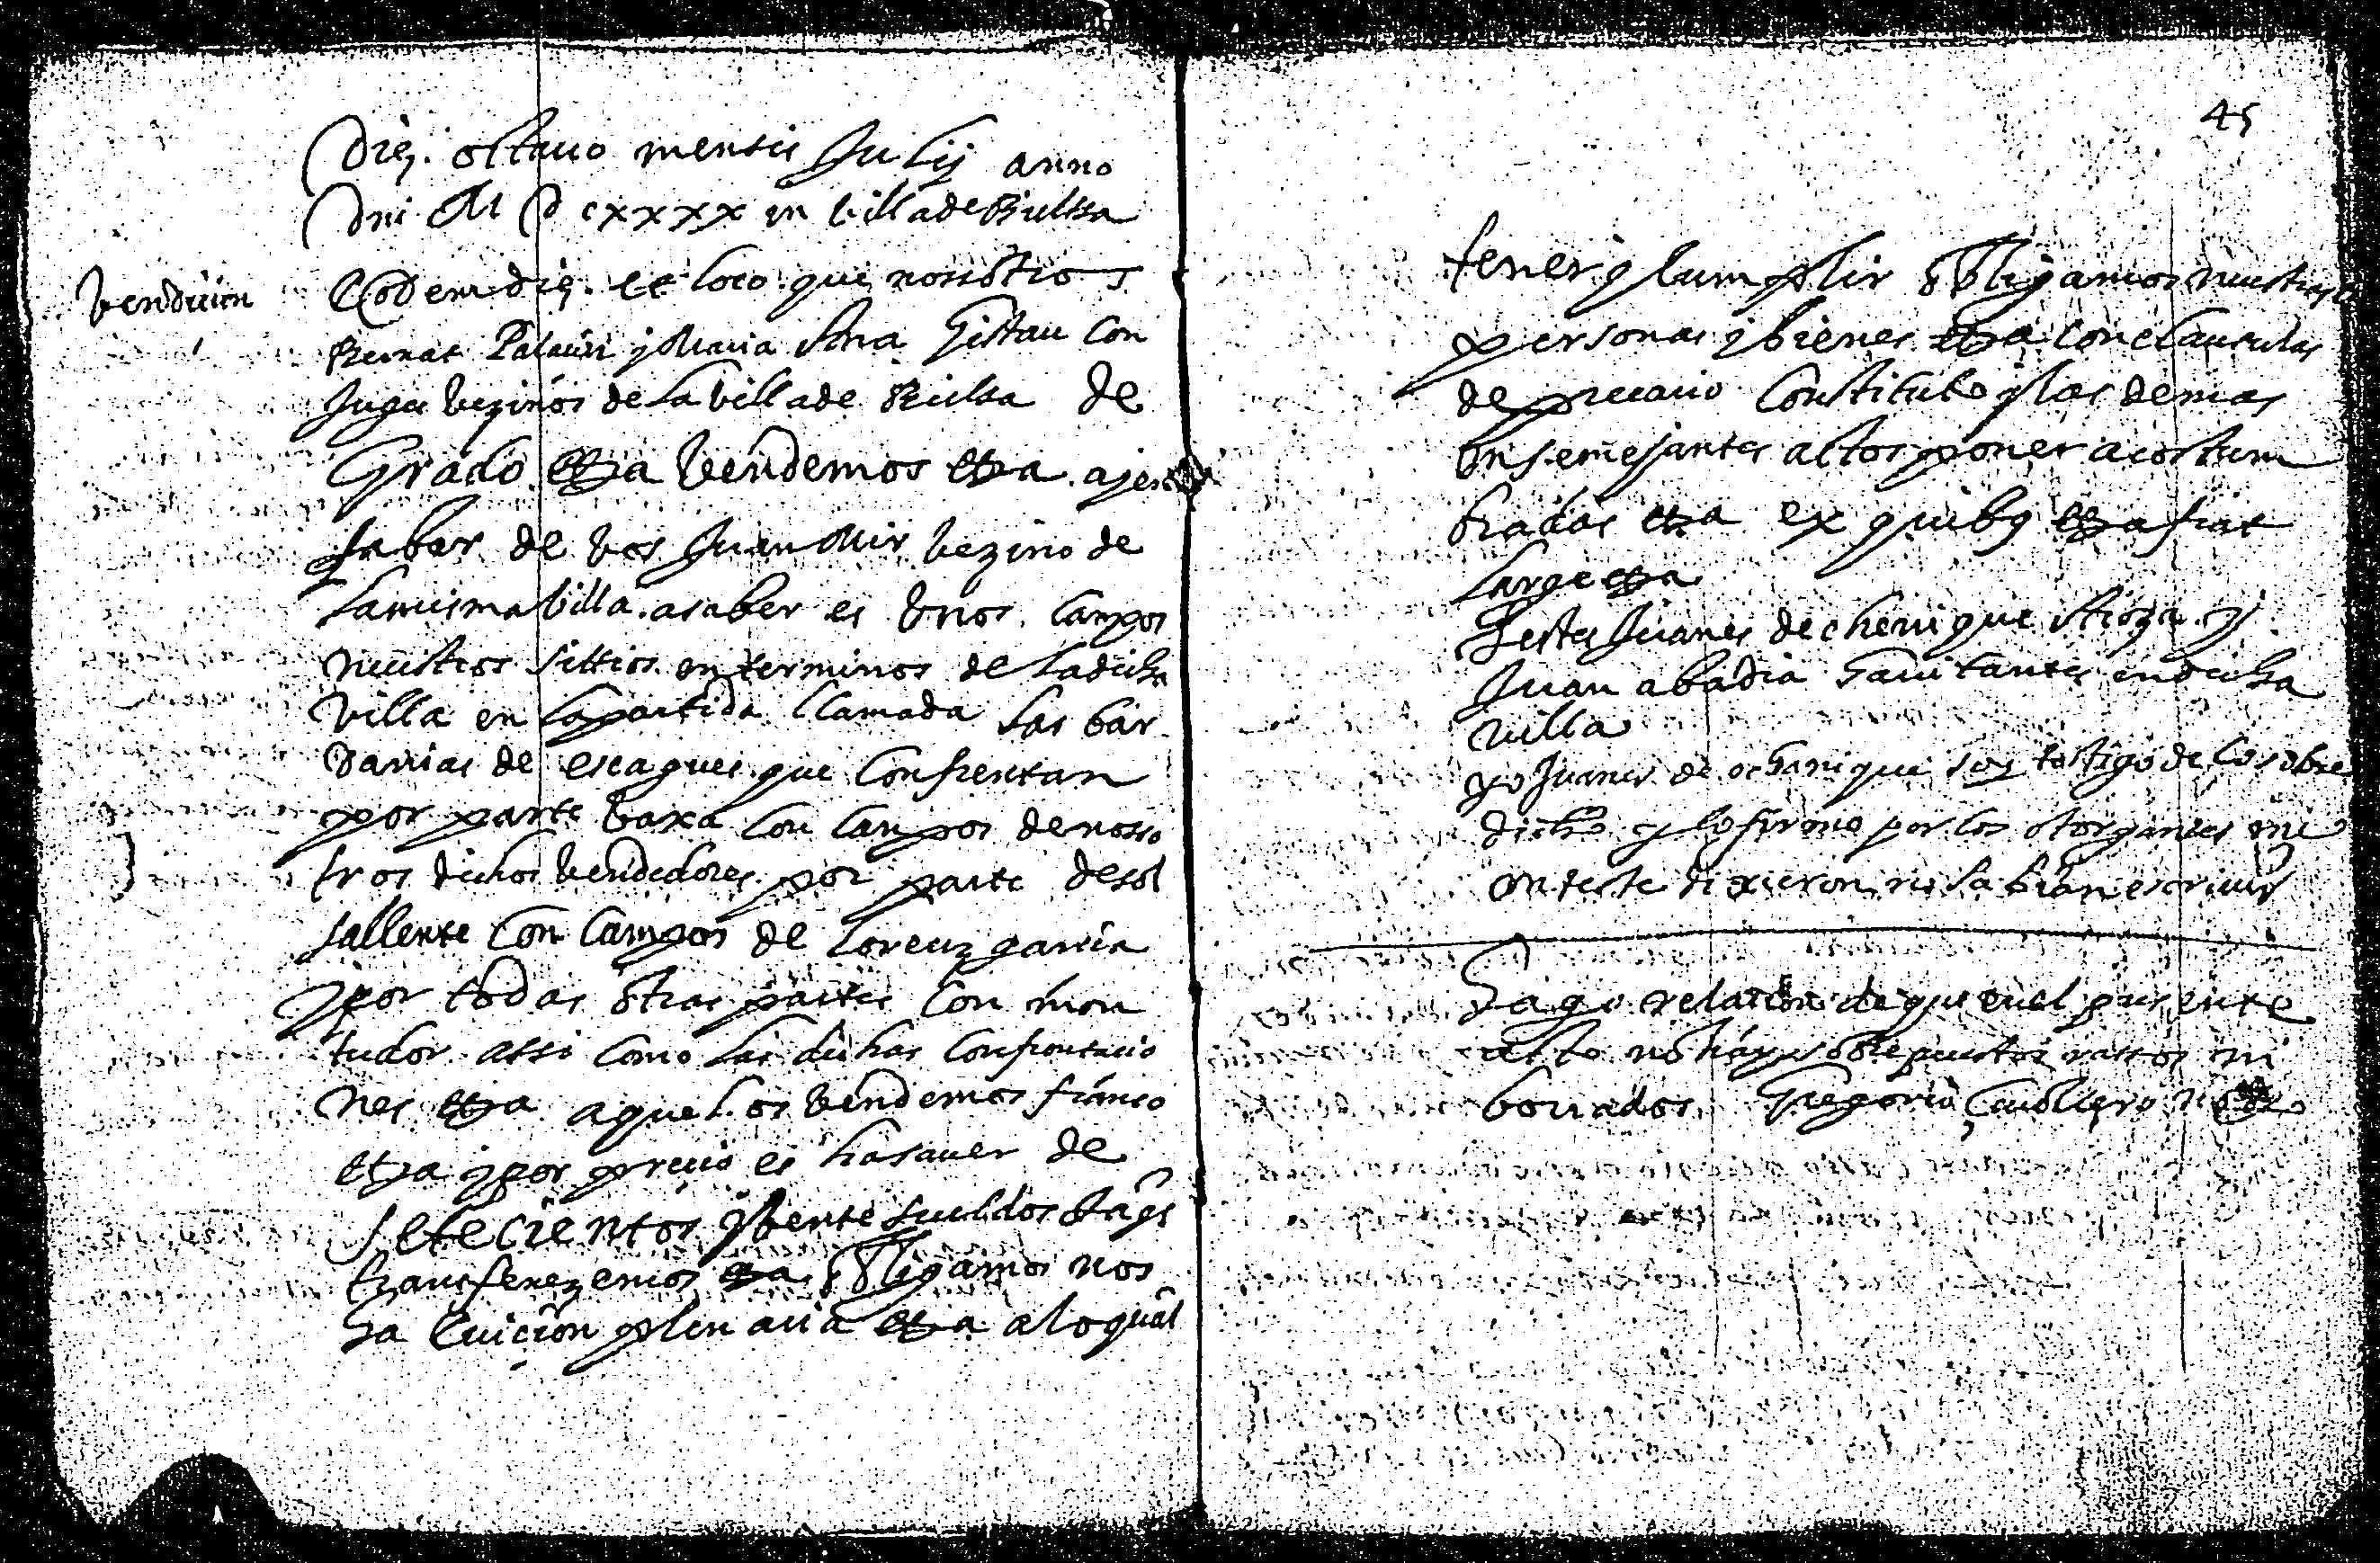 Die octauo mensis Julij anno
Dni M D cxxxx in billa de Bielssa
vendicion
Eodem die et loco que nossotros
Bernat Palacin y Maria Ana Gistau Con
juges bezinos de la billa de Bielsa de
Grado etza bendemos etza a jen
fabor de bos Juan Mir bezino de
la misma billa. asaber es bnos campos
nuestros sittios en terminos de la dicha
villa en la partida llamada las bar
danias de escagues que confrentan
por parte baxa con campos de nosso
tros dichos bendedores por parte de sol
sallente con campos de Lorenz garcia
y por todas otras partes con mon
tudor assi como las dichas confrontacio
nes etza aquellos bendemos franco
etza y por precio es ha sauer de
setecientos y bente sueldos
transferezemos etza obligamos nos
ha euicion plenaria etza a lo qual
45
tener y cumplir obligamos nuestras
personas y bienes etza con clausulas
de precario constituto y las demas
en semejantes actos poner acostum
bradas etza ex quibus etza fiat
large etza
Testes Juanes de chenique y
Juan abadia hauitantes en dicha
villa
yo Juanes de ochanique soy testigo de lo sobre
dicho y lo firmo por los otorgantes
con teste dixieron no sabian escriuir
Hago relacion de que en el presente
acto no hay sobrepuestos rassos ni
borrados Gregorio Caualero